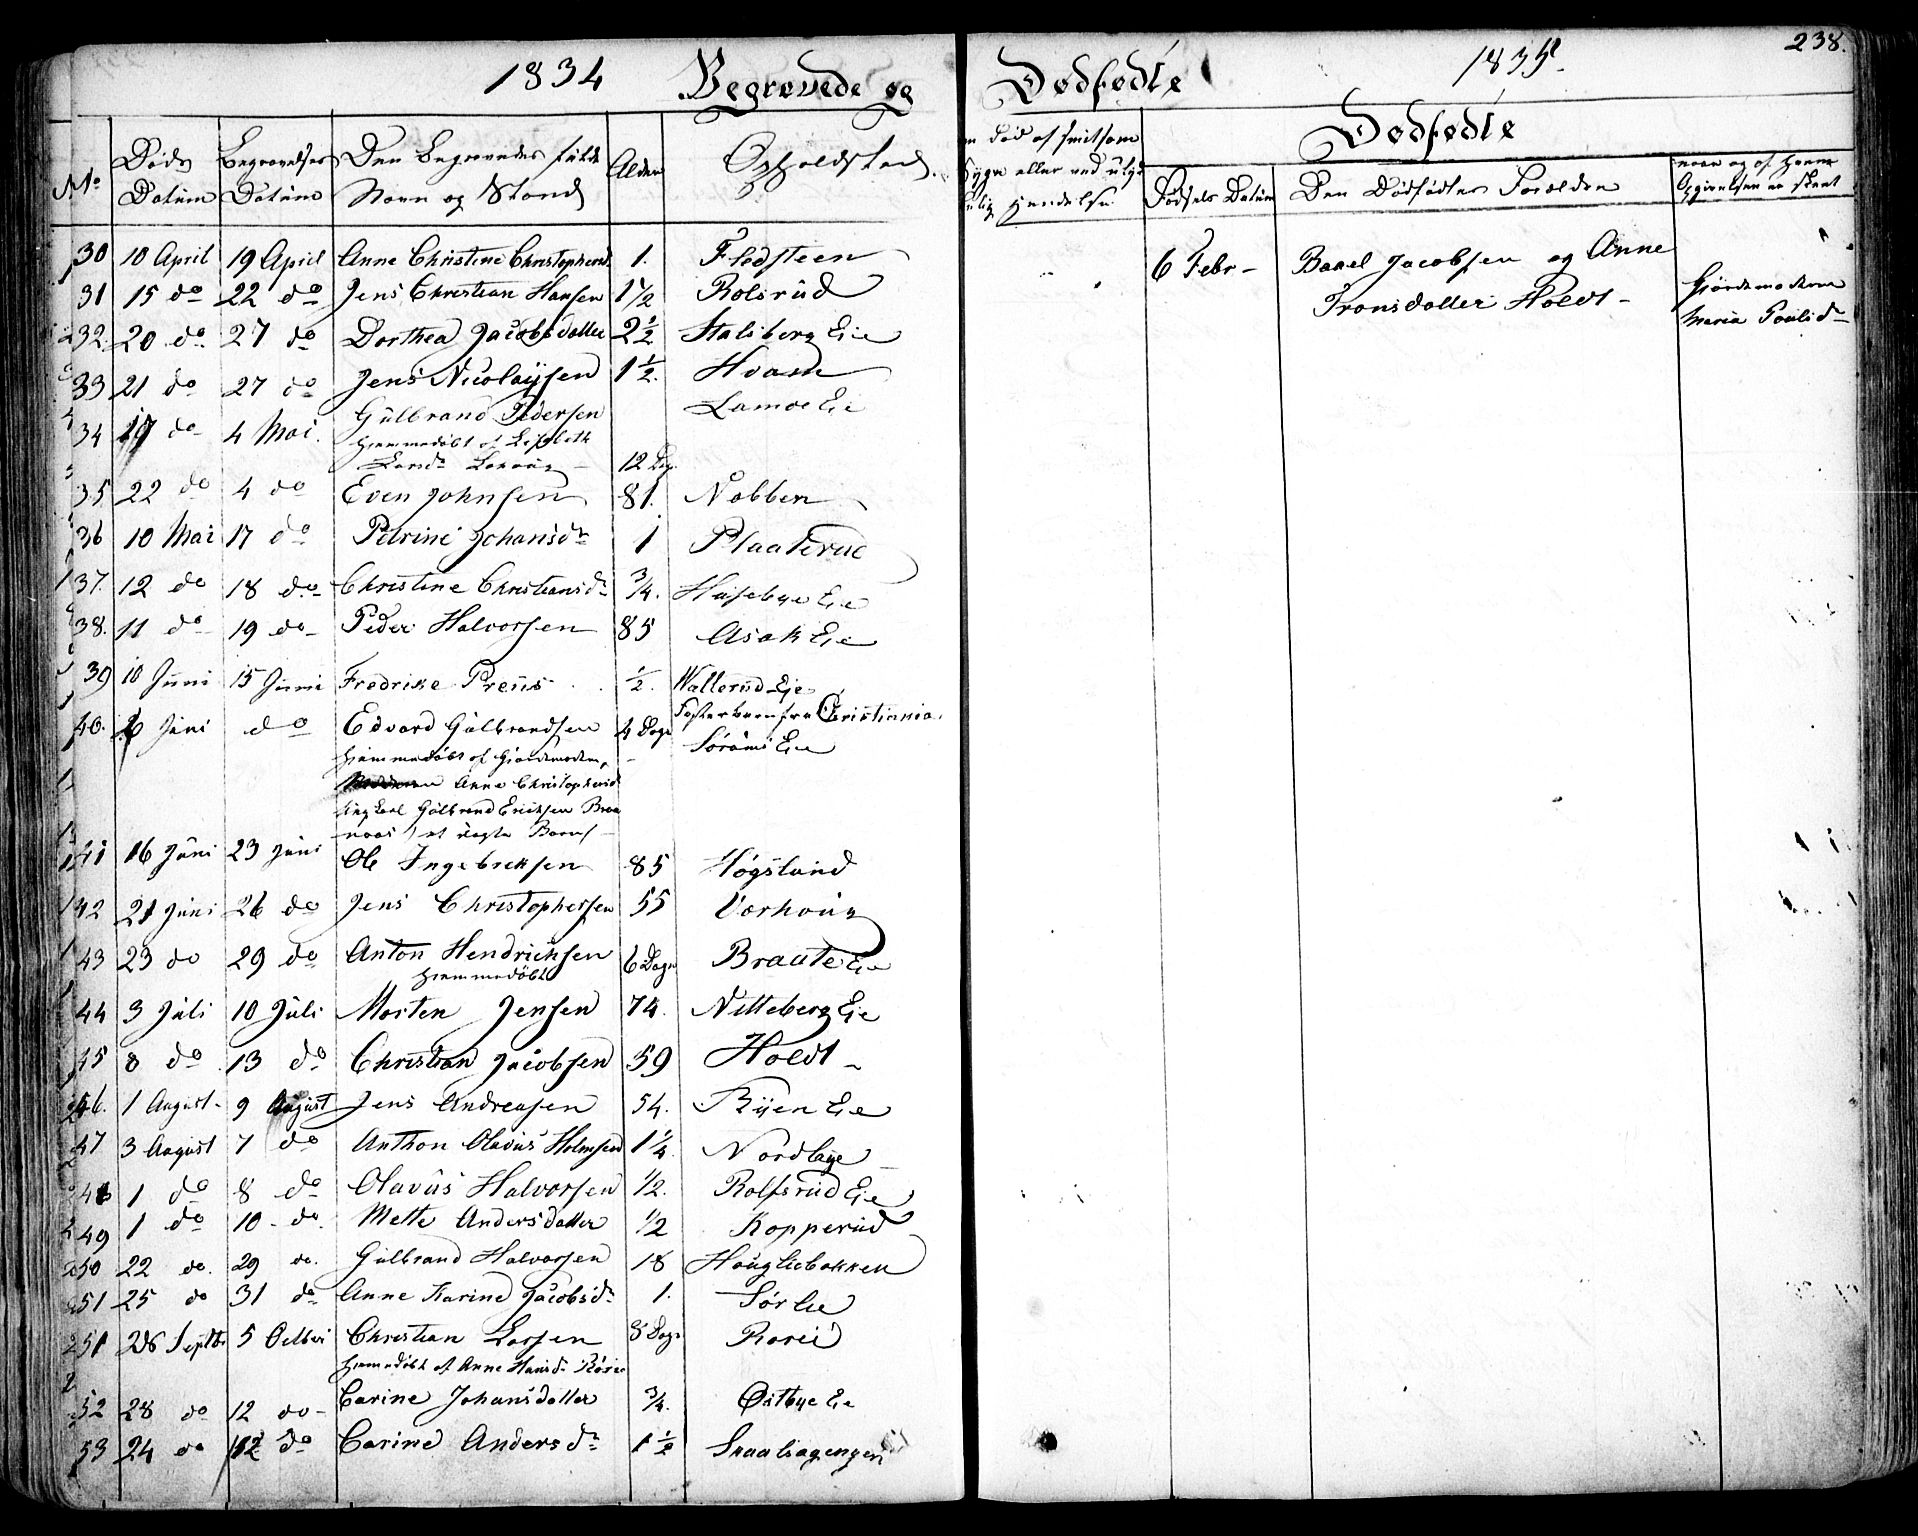 1834 Begravede og Dødfødte 1835. 238.
No
Døds Datum
Begravelses Datum
Den Begravedes fulde Navn og Stand
Alder
Opholdsted.
Død af smitsom
Syge eller ved ulyk
kelig Hændelse
Dødfødte
Fødsels Datum
Den Dødfødtes Forældre
naar og af hvem
Opgivelsen er skeet
30 10 April 19 April Anne Christine Christophersd. 1. Fladsteen
31 15 do 22 do Jens Christian Hansen 1 1/2 Rolsrud
32. 20 do 27 do Dorthea Jacobsdatter 2 1/2 Stalsberg Eie
33 21 do 27 do Jens Nicolaysen 1 1/2. Hvam
34 17 do 4 Mai. Gulbrand Pedersen Lamoe Eie
hjemmedøbt af Lisebeth
Larsdr 12 Dag
35 22 do 4 do Even Johnsen 81. Nabben
36 10 Mai 17 do Petrine Johansdr 1 Plaaterud
37. 12 do 18 do Christine Christiansdr 3/4. Husebye Eie
38. 11 do 19 do Peder Halvorsen 85 Asak Eie
39 10 Juni 15 Juni Fredrike Preus 1/2. Watterud Eje
Fosterbarn fra Christiania.
40. 6 Juni do Edvard Gulbrandsen 4 Dage Sørums Eie
hjemmedøbt af Gjordemoderen,
Anne Christophersd
Ungkarl Gulbrand Eriksen Braa
naas / et uægte Barn /
41 16 Juni 23 Juni Ole Ingebretsen 85 Høgslund
42 21 Juni 26 do Jens Christophersen 55 Varhoug
43 23 do 29 do Anton Hendrichsen 6 Dage Braate Eie
hjemmedøbt
44 3 Juli 10 Juli Morten Jensen 74. Nitteberg Eie
45 8 do 13 do Christian Jacobsen 59 Holdt
46. 1 August 9 August Jens Andreasen 54. Ryen Eie
47 3 August 7 do Anthon Olavus Holmsen 1 1/4. Nordbye
48 1 do 8 do Olavus Halvorsen 1/2. Rolfsrud Eie
49 1 do 10 do. Mette Andersdatter 1/2 Kopperud
50 22 do. 29 do. Gulbrand Halvorsen 18 Haugliebakken
51 25 do 31 do Anne Karine Jacobsdr 1. Sørlie
51 26 Septbr 5 Octbr Christian Larsen 8 Dage
hjemmedøbt af Anne Hansdr
52 28 do 12 do Carine Johansdatter 3/4. Østbye Eie
53 24 do 12 do Carine Andersdr 1 1/2 Snaaliagengen
6 Febr Baael Jacobsen og Anne
Tronsdatter Holdt
Gjordemoderen
Maria Poulsdr